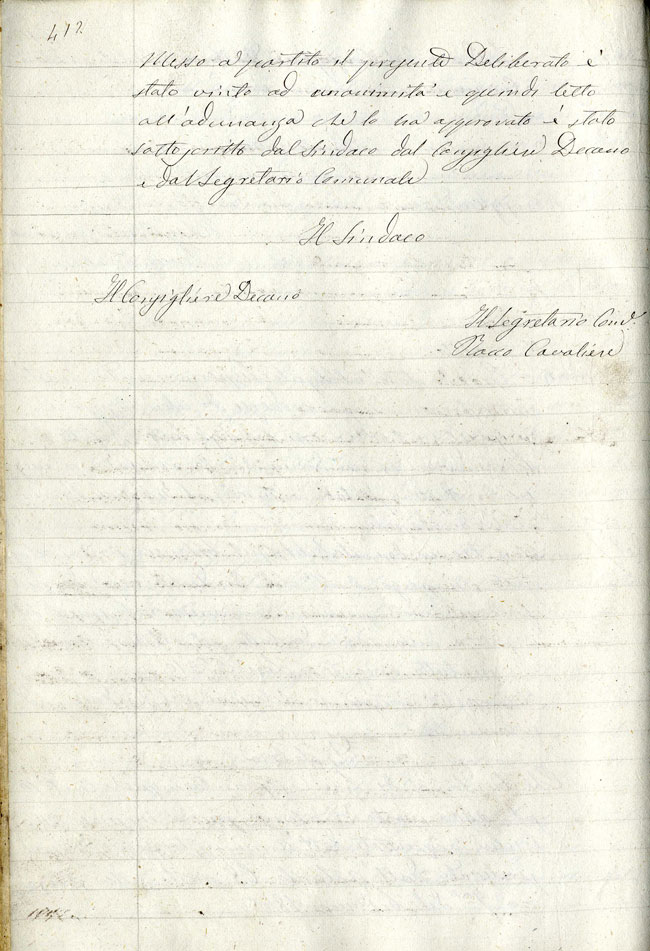 412.
Messo a' partito il presente Deliberato è
stato vinto ad unanimità e quindi letto
all'adunanza che lo ha approvato è stato
sottoscritto dal Sindaco dal Consigliere Decano
e dal Segretario Comunale
Il Sindaco
Il Consigliere Decano
Il Segretario Com.le
Rocco Cavaliere